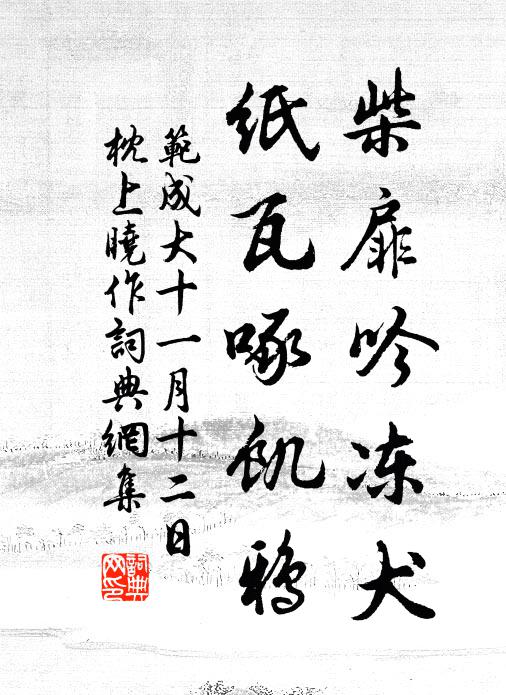 柴扉吟冻犬
纸瓦啄饥鸦
範成大十一月十二日
枕上曉作詞典網集
詞典
网印